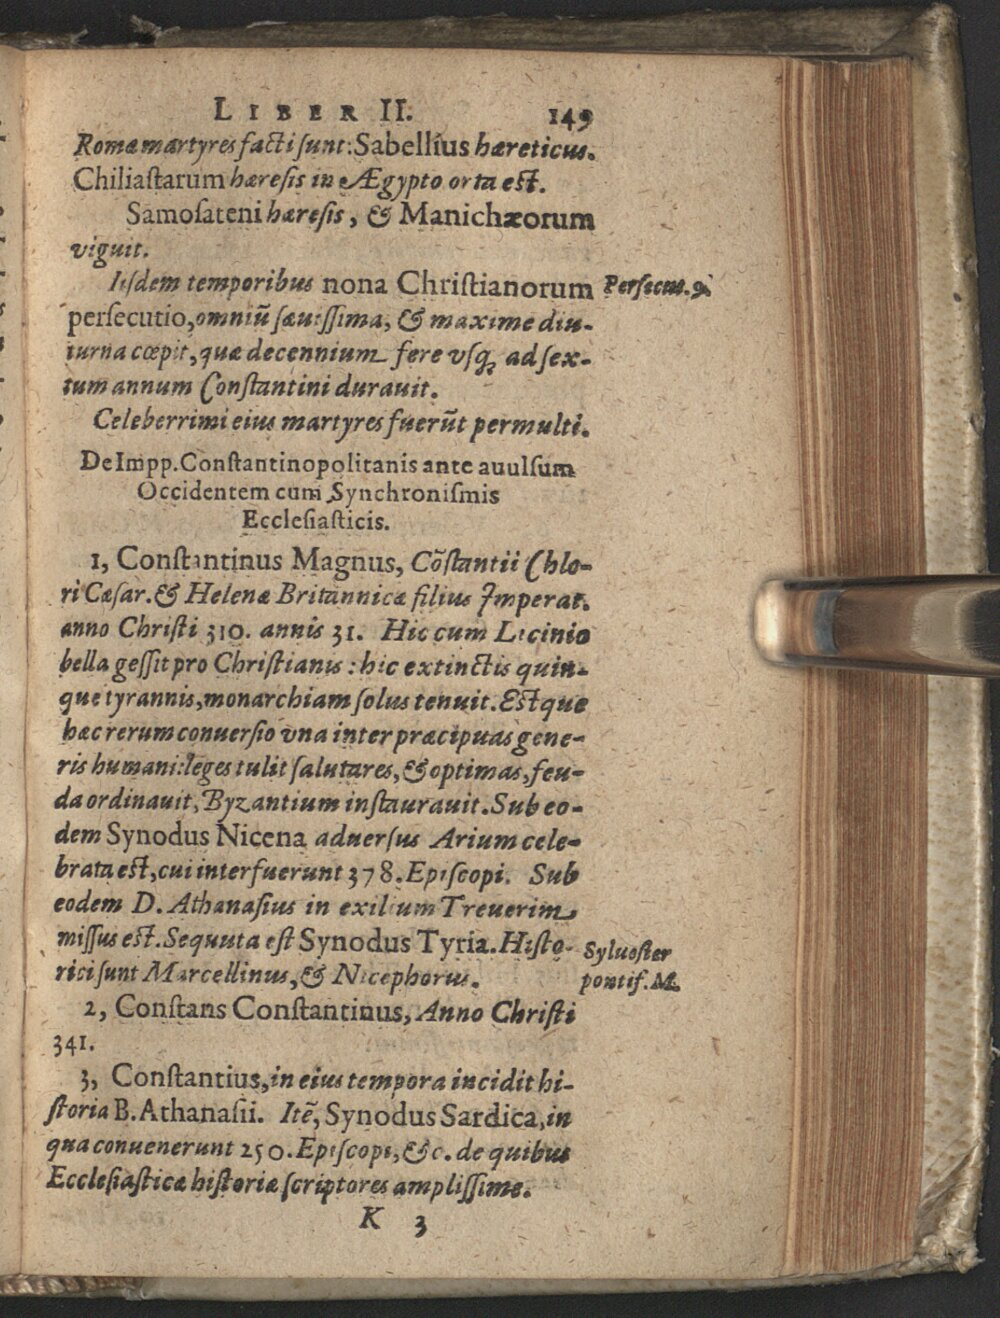 LIBER II. 149
Romæ martyres facti sunt: Sabellius hæreticus.
Chiliastarum hæresis in Ægypto orta est.
Samosateni hæresis, & Manichæorum
viguit.
Iisdem temporibus nona Christianorum
Persecut. 9.
persecutio, omniũ sæuissima, & maxime diu-
turna cœpit, quæ decennium fere vsq; ad sex-
tum annum Constantini durauit.
Celeberrimi eius martyres fuerũt permulti.
De Impp. Constantinopolitanis ante auulsum
Occidentem cum Synchronismis
Ecclesiasticis.
1, Constantinus Magnus, Cõstantii Chlo-
ri Cæsar. & Helenæ Britannicæ filius Imperat.
anno Christi 310. annis 31. Hic cum Licinio
bella gessit pro Christianis: hic extinctis quin-
que tyrannis, monarchiam solus tenuit. Estque
hæc rerum conuersio vna inter præcipuas gene-
ris humani: leges tulit salutares, & optimas, feu-
da ordinauit, Byzantium instaurauit. Sub eo-
dem Synodus Nicena aduersus Arium cele-
brata est, cui interfuerunt 378. Episcopi. Sub
eodem D. Athanasius in exilium Treuerim
missus est. Sequuta est Synodus Tyria. Histo-
rici sunt Marcellinus, & Nicephorus.
Syluester
pontif. M.
2, Constans Constantinus, Anno Christi
341.
3, Constantius, in eius tempora incidit hi-
storia B. Athanasii. Itẽ, Synodus Sardica, in
qua conuenerunt 250. Episcopi, &c. de quibus
Ecclesiasticæ historiæ scriptores amplissime.
K 3